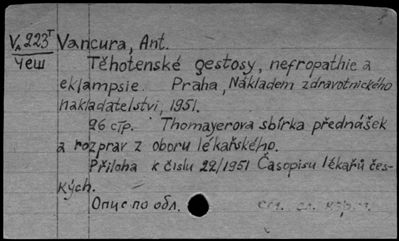 V 223 T Vancura, Ant.
Чеш Těhotenské gestosy, nefropathie a
eklampsie. Praha, Nákladem zdravotnického
nakladatelstvi, 1951.
96 стр. Thomayerova sbírka přednášek
a rozprav z oboru lékařského.
Přiloha k čislu 22/1951 Časopisu lékařů čes-
kých.
Опис по обл.